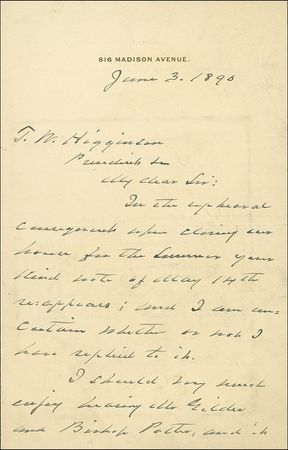 816 MADISON AVENUE.
June 3. 1890
T. W. Higginson
President &c
My dear Sir;
In the upheaval
consequent upon closing our
house for the Summer your
kind note of May 14th
re-appears; and I am un-
certain whether or not I
have replied to it.
I should very much
enjoy hearing Mr Gilder
and Bishop Potter, and it